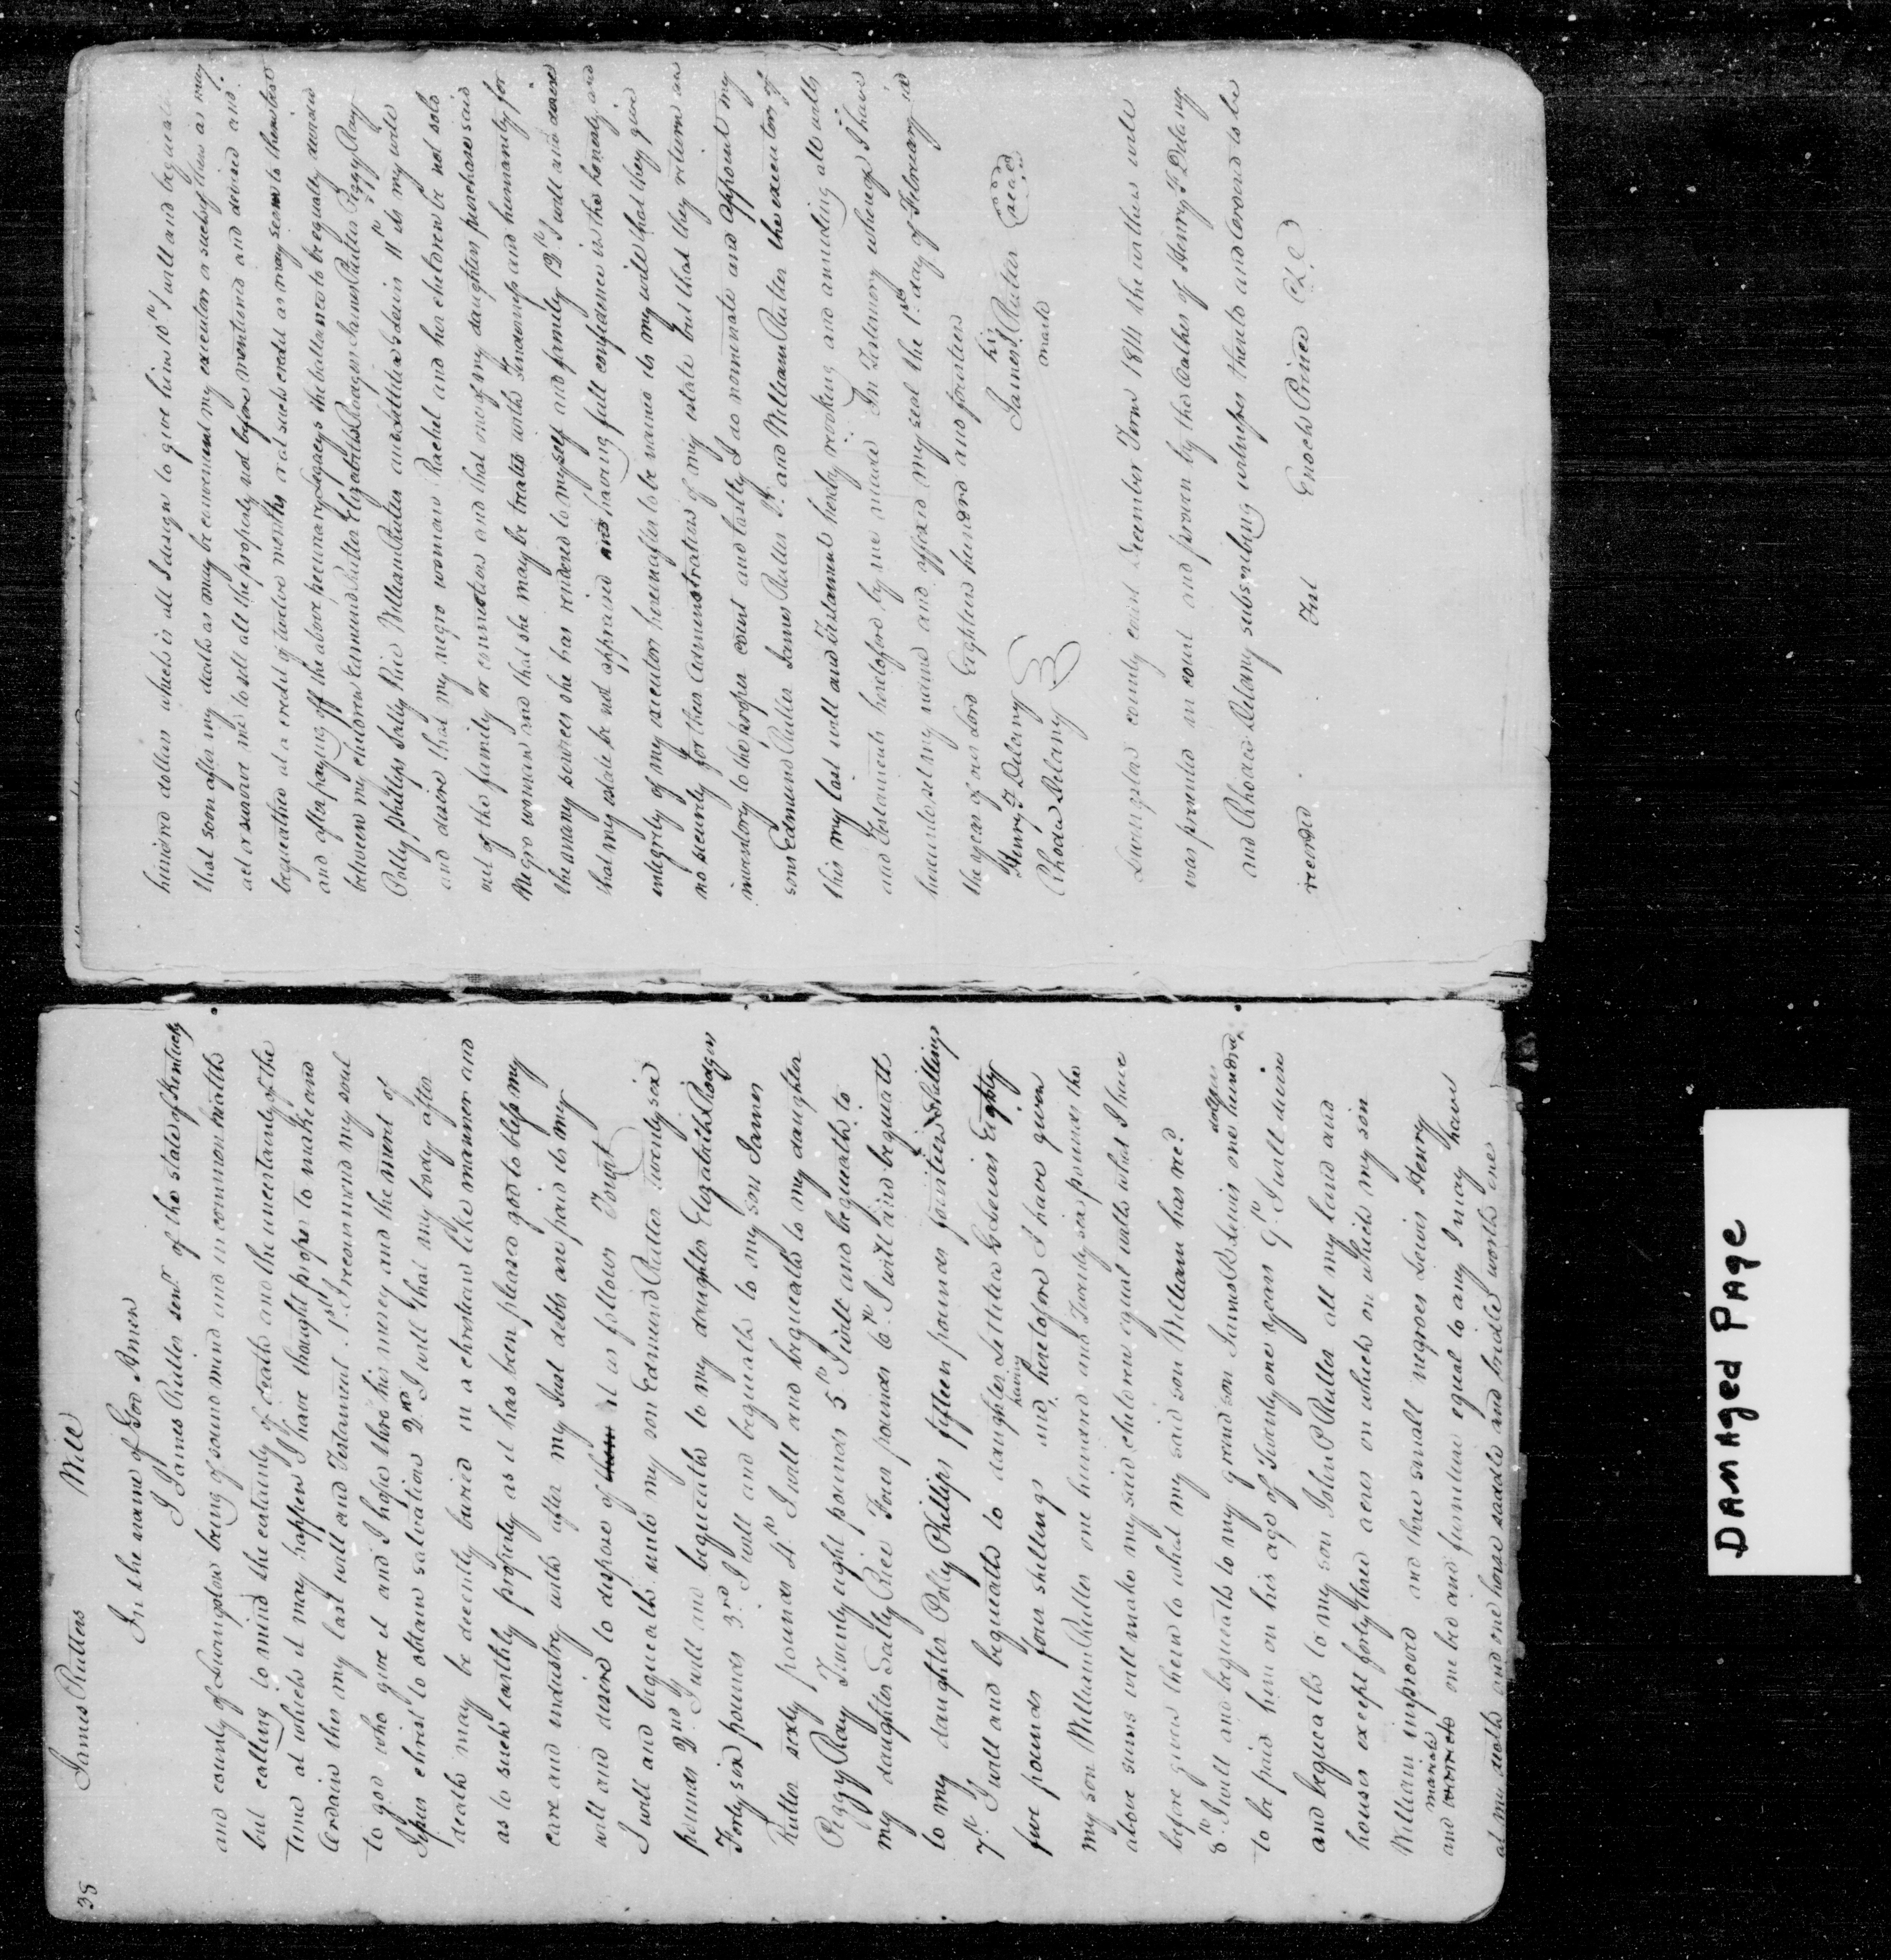 38
James Rutters Will
In the name of God Amen
I James Rutter senr. of the state of Kentucky
and county of Livingston being of sound mind and in common health
but calling to mind the certainty of death and the uncertainty of the
time at which it may happen I have thought proper to make and
Ordain this my last will and Testament. 1st. I recommend my soul
to god who gave it and I hope thro his mercy and the merit of
Jesus christ to obtain salvation 2nd. I will that my body after
death may be decently buried in a christian like manner and
as to such earthly property as it has been pleased god to bless my
care and industry with after my Just debts are paid its my
will and desire to dispose of them it as follows Towit
I will and bequeath unto my son Edmund Rutter twenty six
pounds 2ndly I will and bequeath to my daughter Elizabeth Rodgers
Forty six pounds 3rd. I will and bequeath to my son James
Rutter sixty pounds 4th I will and bequeath to my daughter
Peggy Ray Twenty eight pounds 5th I will and bequeath to
my daughter Sally Rice Four pounds 6th I will and bequeath
to my daughter Polly Phillips fifteen pounds fourteen shillings
7th I will and bequeath to daughter Lettitia Ledewis Eighty
five pounds four shillings and having heretofore I have given
my son William Rutter one hundred and Twenty six pounds the
above sums will make my said children equal with what I have
before given them to what my said son William has recd.
8th I will and bequeath to my grand son James R Lewis one hundred dollars
to be paid him on his age of Twenty one years 9th I will desire
and bequeath to my son John P Rutter all my land and
houses except forty three acres on which on which my son
William improved and three small negroes Lewis Henry
and one bed and furniture equal to any I may have
at my death and one horse saddle and bridle worth one
hundred dollars which is all I design to give him 10th I will and bequeath
that soon after my death as may be convenient my executors or such of them as may
act or survive me to sell all the property not before mentioned and devised and
bequeathed at a credit of twelve months or at such credit as may seem to them best
and after paying off the above pecuniary Legacys the ballance to be equally divided
between my children Edmund Rutter Elizabeth Rodgers James Rutter Peggy Ray
Polly Phillips Sally Rice William Rutter and Lettitia Ledewis 11th its my will
and desire that my negro woman Rachel and her children be not sold
out of the family or connection and that one of my daughters purchase said
Negro woman and that she may be treated with tenderness and humanity for
the many services she has rendered to myself and family 12th I will and desire
that my estate be not appraised and having full confidence in the honesty and
integrity of my executors hereinafter to be named its my will that they give
no security for their administration of my estate but that they return an
inventory to the proper court and lastly I do nominate and appoint my
sons Edmund Rutter James Rutter Jr. and William Rutter the executors of
this my last will and Testament hereby revoking and annulling all wills
and Testaments heretofore by me made In Testimony whereof I have
hereunto set my name and affixed my seal the 1st day of February in
the year of our Lord Eighteen hundred and fourteen
Henry F Delany
Rhoda Delany
his
James Rutter seal
mark
Livingston county court December Term 1814 the within will
was presented in court and proven by the Oathes of Henry F Delany
and Rhoda Delany subscribing witnesses thereto and Ordered to be
recorded Test Enoch Prince Clk
DAMAGED PAGE